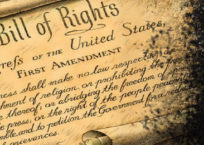 Bill of Rights
ress OF THE United States,
FIRST AMENDMENT
ress shall make no law respecting
hment of religion, or prohibiting the
thereof; or abridging the freedom of
press, or the right of the people
ble, and to petition the Government for
grievances.